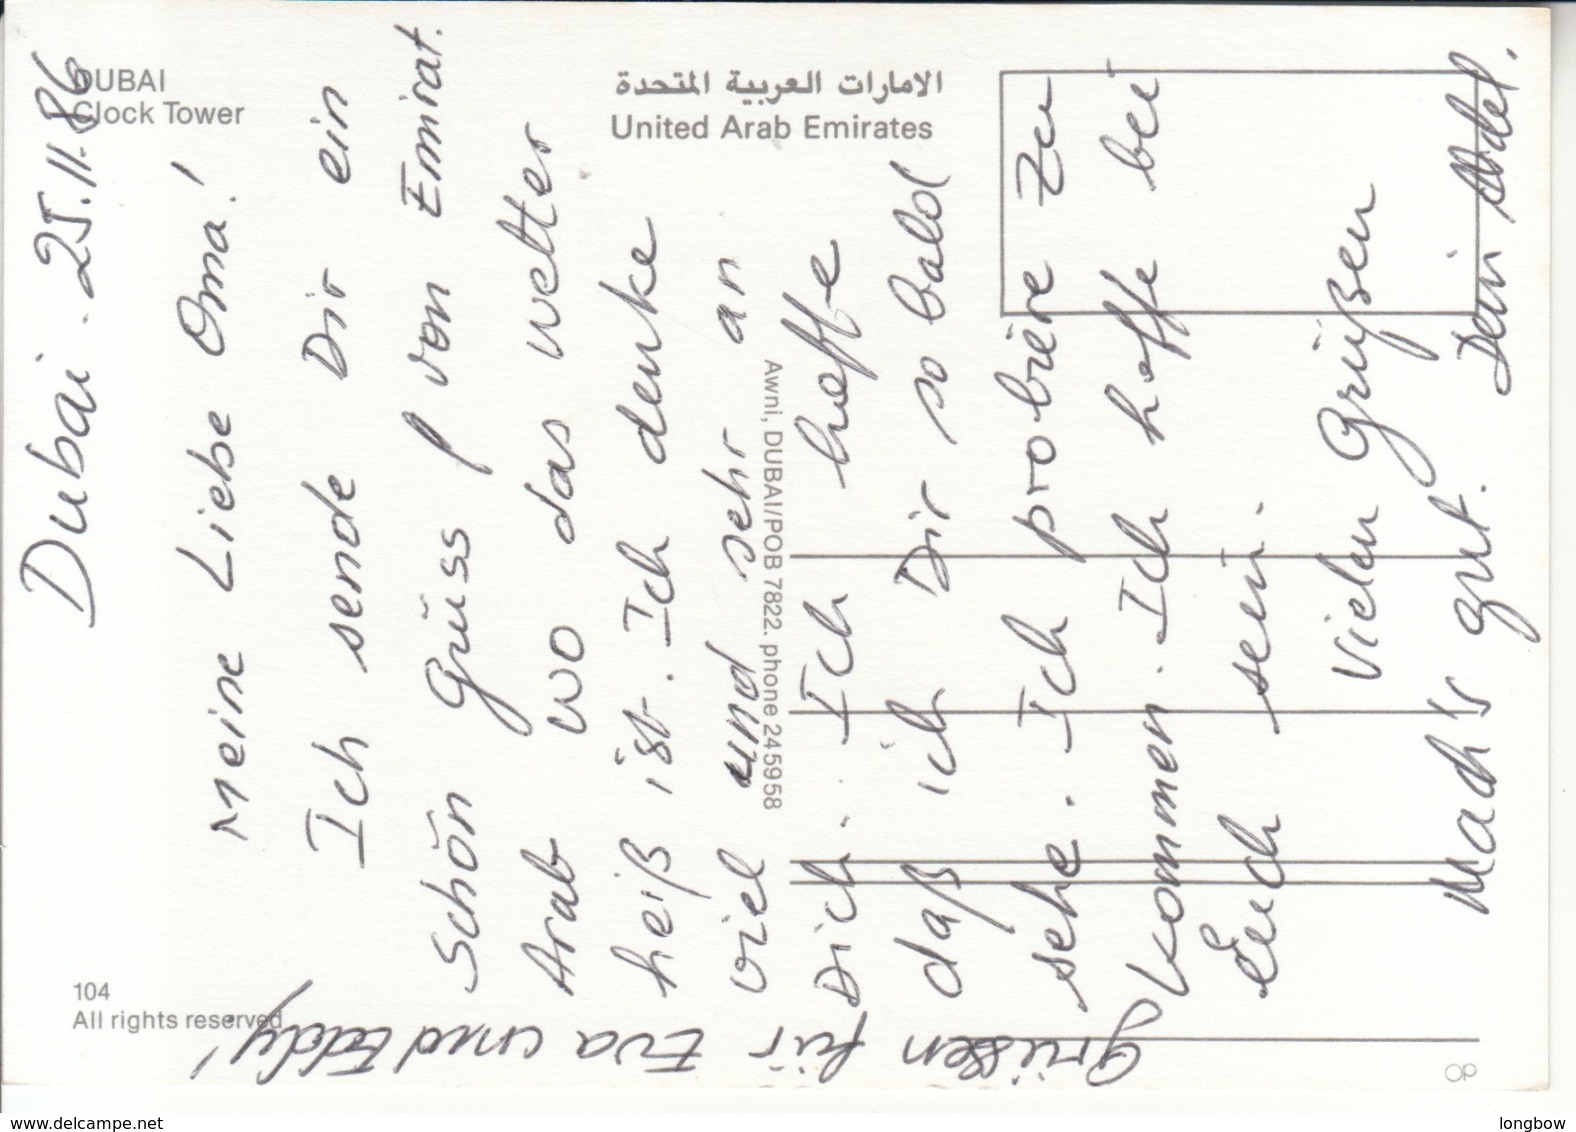 DUBAI
Clock Tower
الامارات العربية المتحدة
United Arab Emirates
Awni, DUBAI/POB 7822. phone 245958
104
All rights reserved
Dubai. 25.11.86
Meine Liebe Oma!
Ich sende Dir ein
Schön Grüss von Emirat.
Arab wo das wetter
heiß ist. Ich denke
viel und sehr an
Dich. Ich hoffe
daß ich Dir so bald
sehe. Ich probiere zu
kommen. Ich hoffe bei
Euch sein.
Vielen Grüßen
Mach's gut. Dein Adel.
Grüssen für Eva und Eddy!
www.delcampe.net
longbow